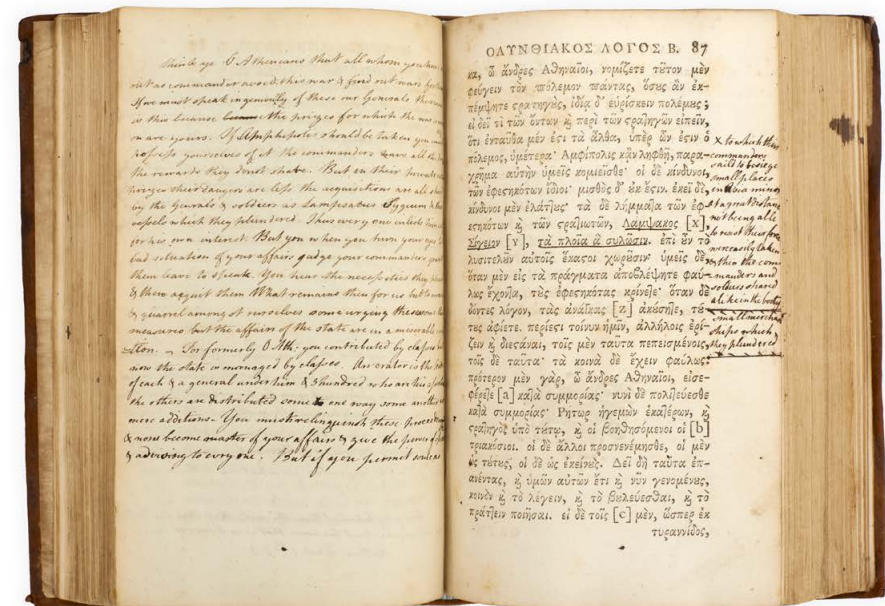 think ye O Athenians that all whom you have
out as commander avoid this war & find out wars
If we must speak ingenuously of these our Generals there
is this because the prizes for which the war
are yours. If Amphipolis should be taken you
possess yourselves of it the commanders have all the
the rewards they dont share. But in their
their dangers are less the acquisitions are all
by the Generals & soldiers as Lampsacus Sygeum &
vessels which they plundered. Thus every one
for his own interest. But you when you turn your eyes to
bad situation of your affairs judge your commanders
them leave to speak. You hear the necessities they
& them acquit them What remains then for us but to
& quarrel among st ourselves some urging these
measures. but the affairs of the state are in a miserable
For formerly O Ath: you contributed by classes but
now the state is managed by classes. An orator is the
of each & a general under him & 3 hundred who are his
the others are distributed some to one way some another
mere additions. You must relinquish these
& now become master of your affairs & give the power of
& advising to every one. But if you permit some as
ΟΛΥΝΘΙΑΚΟΣ ΛΟΓΟΣ Β. 87
κα, ὦ ἄνδρες Ἀθηναῖοι, νομίζετε τῦτον μὲν
φεύγειν τὸν πόλεμον πάντας, ὅσυς ἂν ἐκ-
πέμψητε ϛρατηγὺς, ἰδίᾳ δ᾽ εὑρίσκειν πολέμυς ;
εἰ δεῖ τι τῶν ὄντων ϗ̀ περὶ τῶν ϛρατηγῶν εἰπεῖν,
ὅτι ἐνταῦθα μέν ἐϛι τὰ ἆθλα, ὑπὲρ ὧν ἐϛιν ὁ
πόλεμος, ὑμέτερα· Ἀμφίπολις κἂν ληφθῇ, παρα-
χρῆμα αὐτὴν ὑμεῖς κομιεῖσθε· οἱ δὲ κίνδυνοι,
τῶν ἐφεϛηκότων ἴδιοι· μισθὸς δ᾽ ὐκ ἔϛιν. ἐκεῖ δὲ,
κίνδυνοι μὲν ἐλάττυς· τὰ δὲ λήμματα τῶν ἐφ-
εϛηκότων ϗ̀ τῶν ϛρατιωτῶν, Λάμψακος [x],
Σίγειον [y], τὰ πλοῖα ἃ συλῶσιν. ἐπὶ ὖν τὸ
λυσιτελῦν αὑτοῖς ἕκαϛοι χωρῦσιν· ὑμεῖς δὲ,
ὅταν μὲν εἰς τὰ πράγματα ἀποβλέψητε φαύ-
λως ἔχοντα, τὺς ἐφεϛηκότας κρίνετε· ὅταν δὲ
δόντες λόγον, τὰς ἀνάγκας [z] ἀκύσητε, τύ-
τυς ἀφίετε. περίεϛι τοίνυν ἡμῖν, ἀλλήλοις ἐρί-
ζειν ϗ̀ διεϛάναι, τοῖς μὲν ταῦτα πεπεισμένοις,
τοῖς δὲ ταῦτα· τὰ κοινὰ δὲ ἔχειν φαύλως.
πρότερον μὲν γὰρ, ὦ ἄνδρες Ἀθηναῖοι, εἰσε-
φέρετε [a] κατὰ συμμορίας· νυνὶ δὲ πολιτεύεσθε
κατὰ συμμορίας. Ῥήτωρ ἡγεμὼν ἑκατέρων, ϗ̀
ϛρατηγὸς ὑπὸ τύτῳ, ϗ̀ οἱ βοηθησόμενοι οἱ [b]
τριακόσιοι. οἱ δὲ ἄλλοι προσνενέμησθε, οἱ μὲν
ὡς τύτυς, οἱ δὲ ὡς ἐκείνυς. Δεῖ δὴ ταῦτα ἐπ-
ανέντας, ϗ̀ ὑμῶν αὐτῶν ἔτι ϗ̀ νῦν γενομένυς,
κοινὸν ϗ̀ τὸ λέγειν, ϗ̀ τὸ βυλεύεσθαι, ϗ̀ τὸ
πράττειν ποιῆσαι. εἰ δὲ τοῖς [c] μὲν, ὥσπερ ἐκ
τυραννίδος,
x to which their
commanders
sail'd to besiege
small places
in Asia minor
at a great distance
not being able
to resist their force
were easily taken
& then the com
manders and
soldiers shared
alike in the booty
small merchant
ships which
they plundered